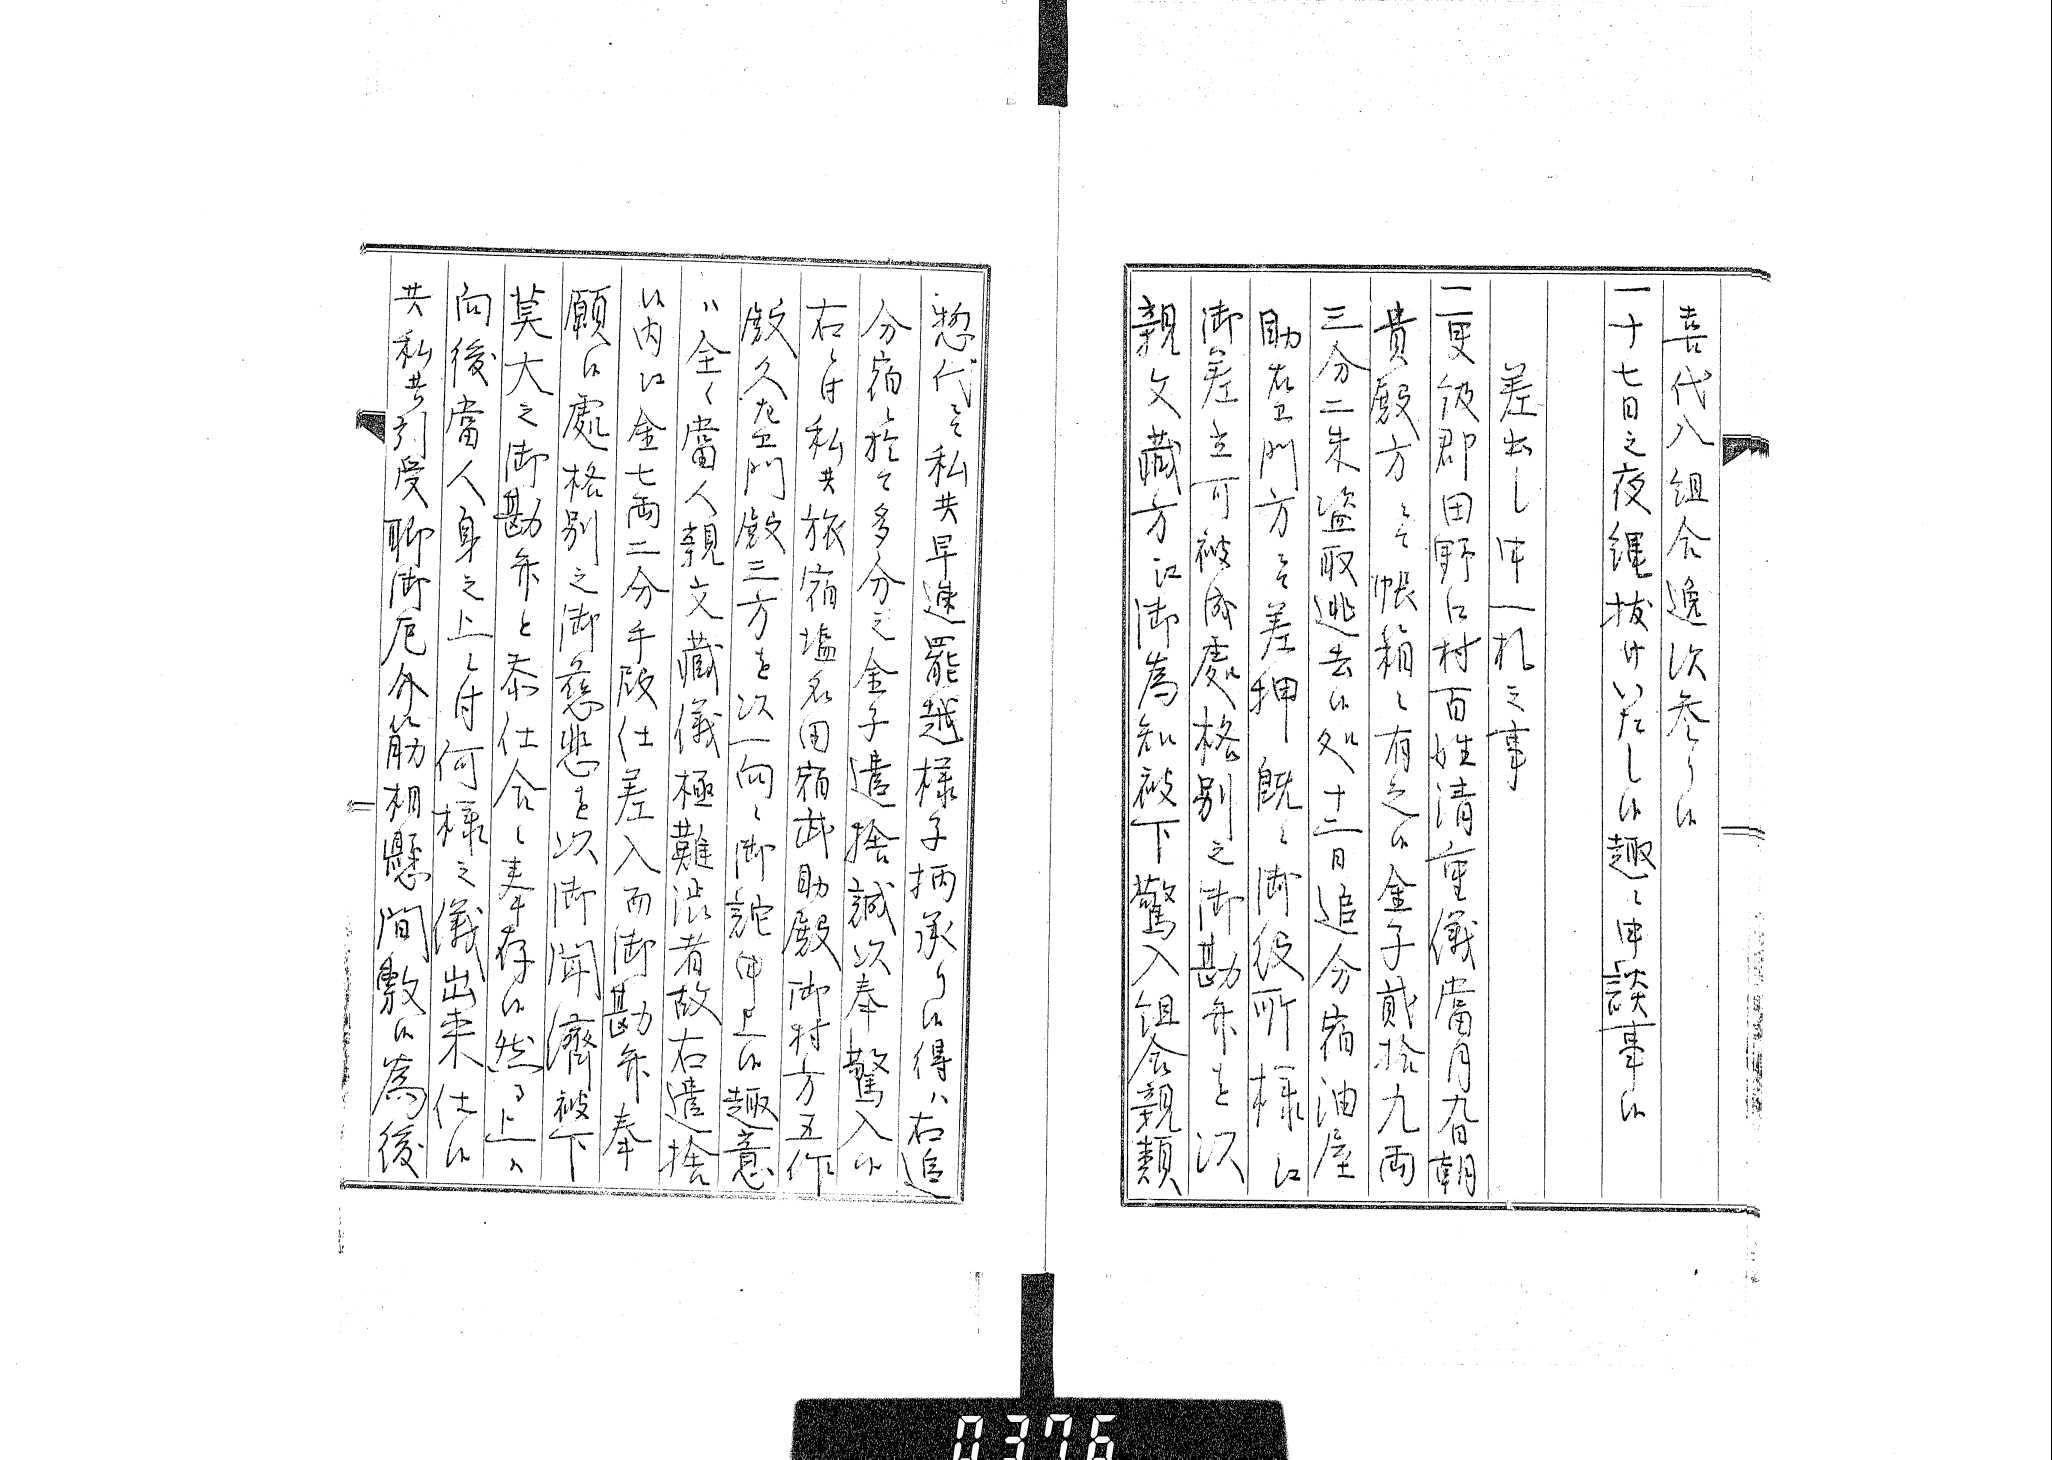 喜代八組合逸次参り候
一十七日之夜縄抜けいたし候趣ニ申談事候
差出し申一札之事
一更級郡田野口村百姓清重儀當月九日朝
貴殿方ニ而帳箱ニ有之候金子貮拾九両
三分二朱盗取逃去候処十二日追分宿油屋
助右衛門方ニ而差押既ニ御役所様江
御差立可被成處格別之御勘弁を以
親文藏方江御為知被下驚入組合親類
惣代ニ而私共早速罷越様子柄承り候得ハ右追
分宿ニ於て多分之金子遣捨誠以奉驚入候
右ニ付私共旅宿塩名田宿武助殿御村方五作
殿久左衛門殿三方を以一向ニ御詫申上候趣意
ハ全く當人親文藏儀極難渋者故右遣捨
候内江金七両二分手段仕差入而御勘弁奉
願候處格別之御慈悲を以御聞濟被下
莫大之御勘弁と忝仕合ニ奉存候然る上ハ
向後當人身之上ニ付何様之儀出来仕候
共私共引受聊御厄介筋相懸間敷候為後
0376